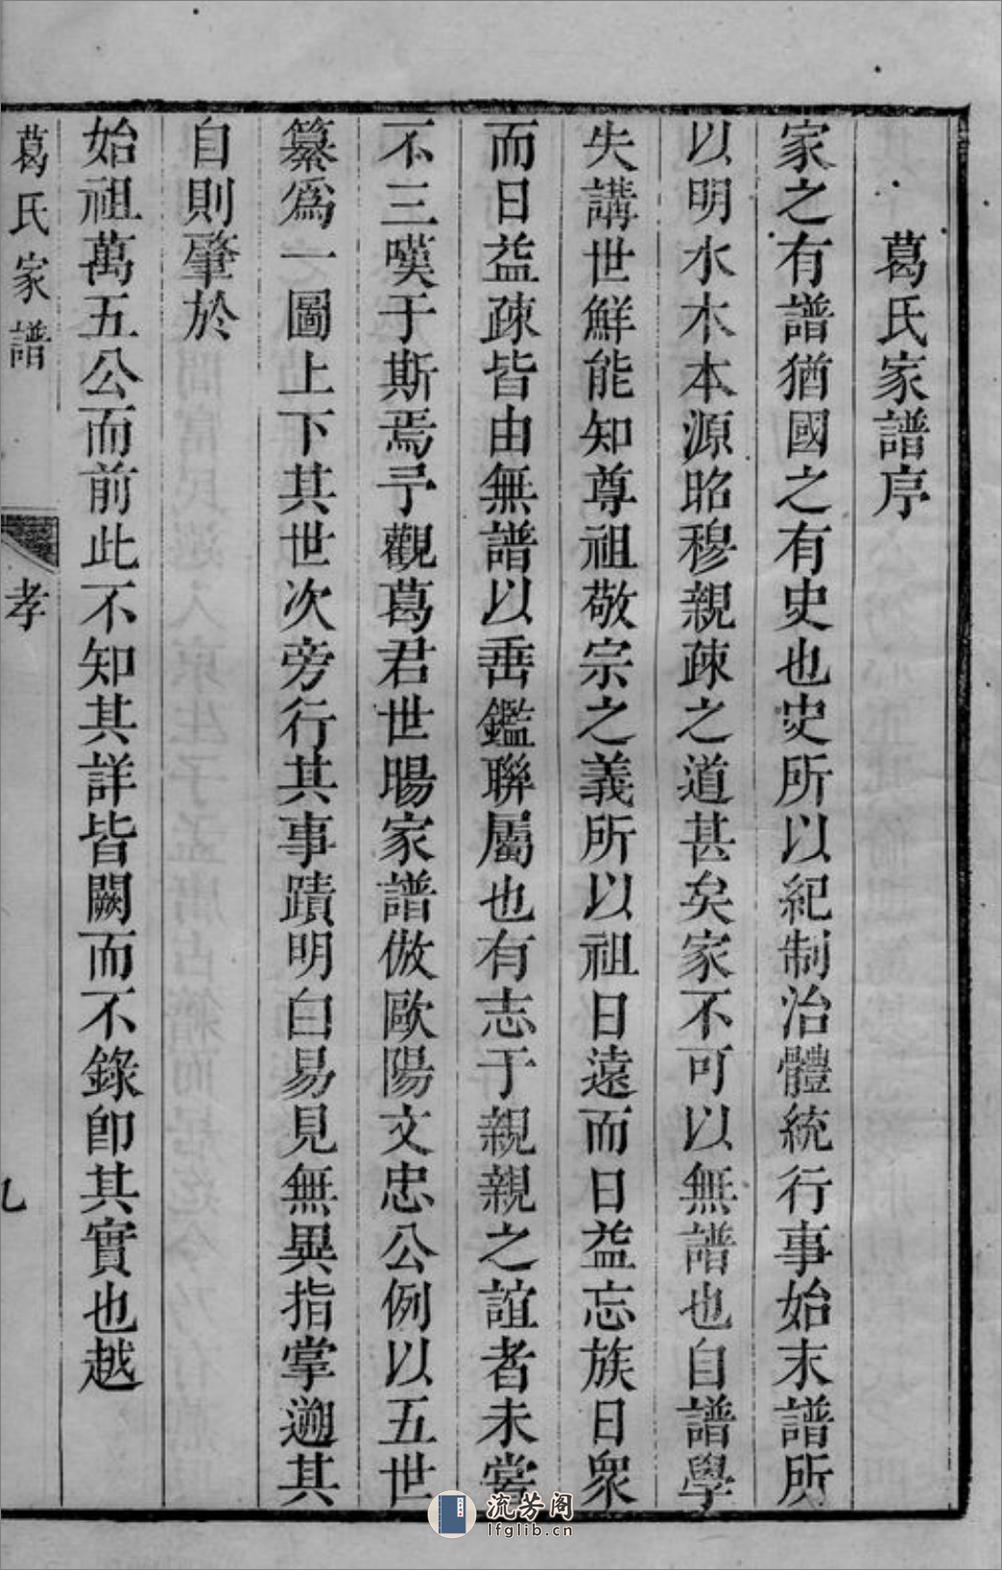 葛氏家譜序
家之有譜猶國之有史也史所以紀制治體統行事始末譜所
以明水木本源昭穆親疎之道甚矣家不可以無譜也自譜學
失講世鮮能知尊祖敬宗之義所以祖日遠而日益忘族日衆
而日益疎皆由無譜以垂鑑聯屬也有志于親親之誼者未嘗
不三嘆于斯焉予觀葛君世暘家譜倣歐陽文忠公例以五世
纂爲一圖上下其世次旁行其事蹟明白易見無異指掌遡其
自則肇於
始祖萬五公而前此不知其詳皆闕而不錄卽其實也越
葛氏家譜
孝
九
流芳阁
lfglib.cn